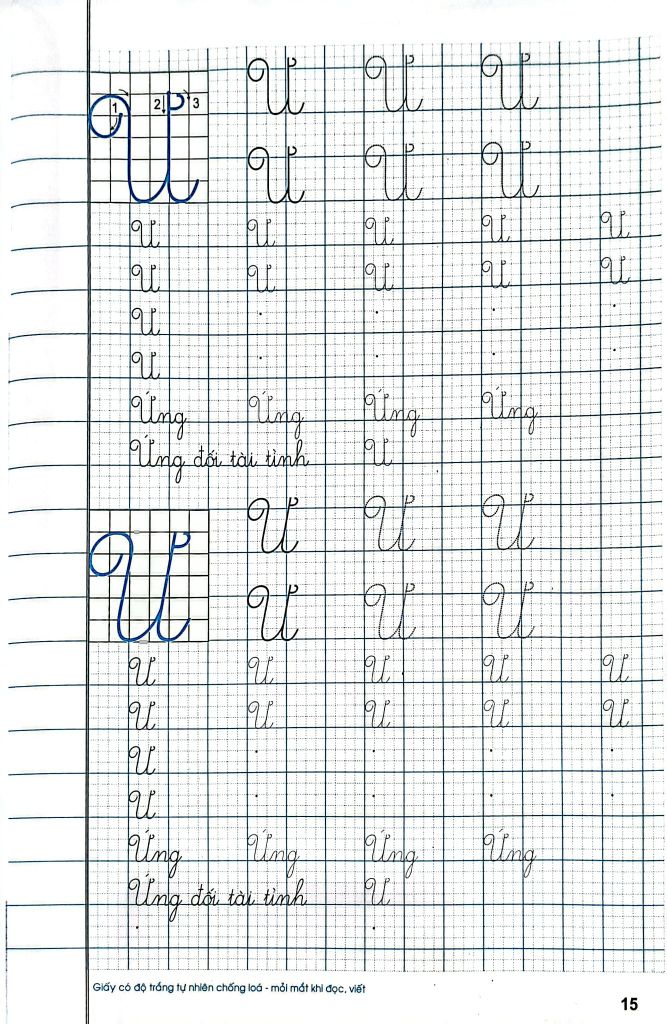 1 2 3 Ư Ư Ư Ư
Ư Ư Ư
Ư Ư Ư Ư Ư
Ư Ư Ư Ư Ư
Ư
Ư
Ứng Ứng Ứng Ứng
Ứng đối tài tình Ư
Ư Ư Ư Ư
Ư Ư Ư
Ư Ư Ư Ư Ư
Ư Ư Ư Ư Ư
Ư
Ư
Ứng Ứng Ứng Ứng
Ứng đối tài tình Ư
Giấy có độ trắng tự nhiên chống loá - mỏi mắt khi đọc, viết
15